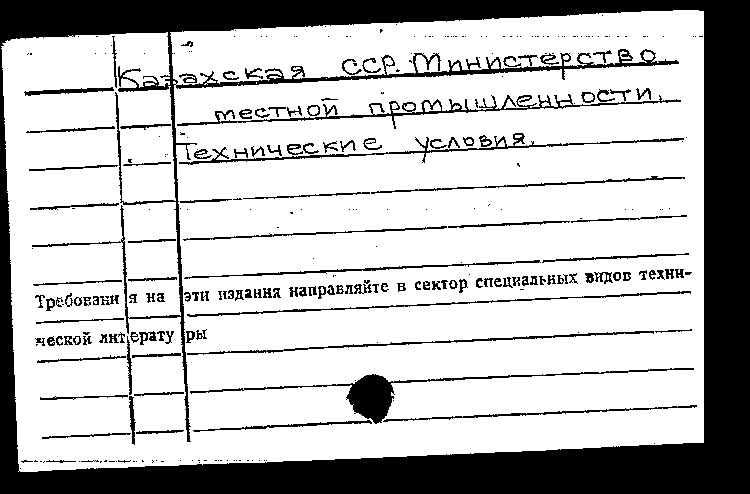 Казахская ССР. Министерство
местной промышленности.
Технические условия.
Требования на эти издания направляйте в сектор специальных видов техни-
ческой литературы